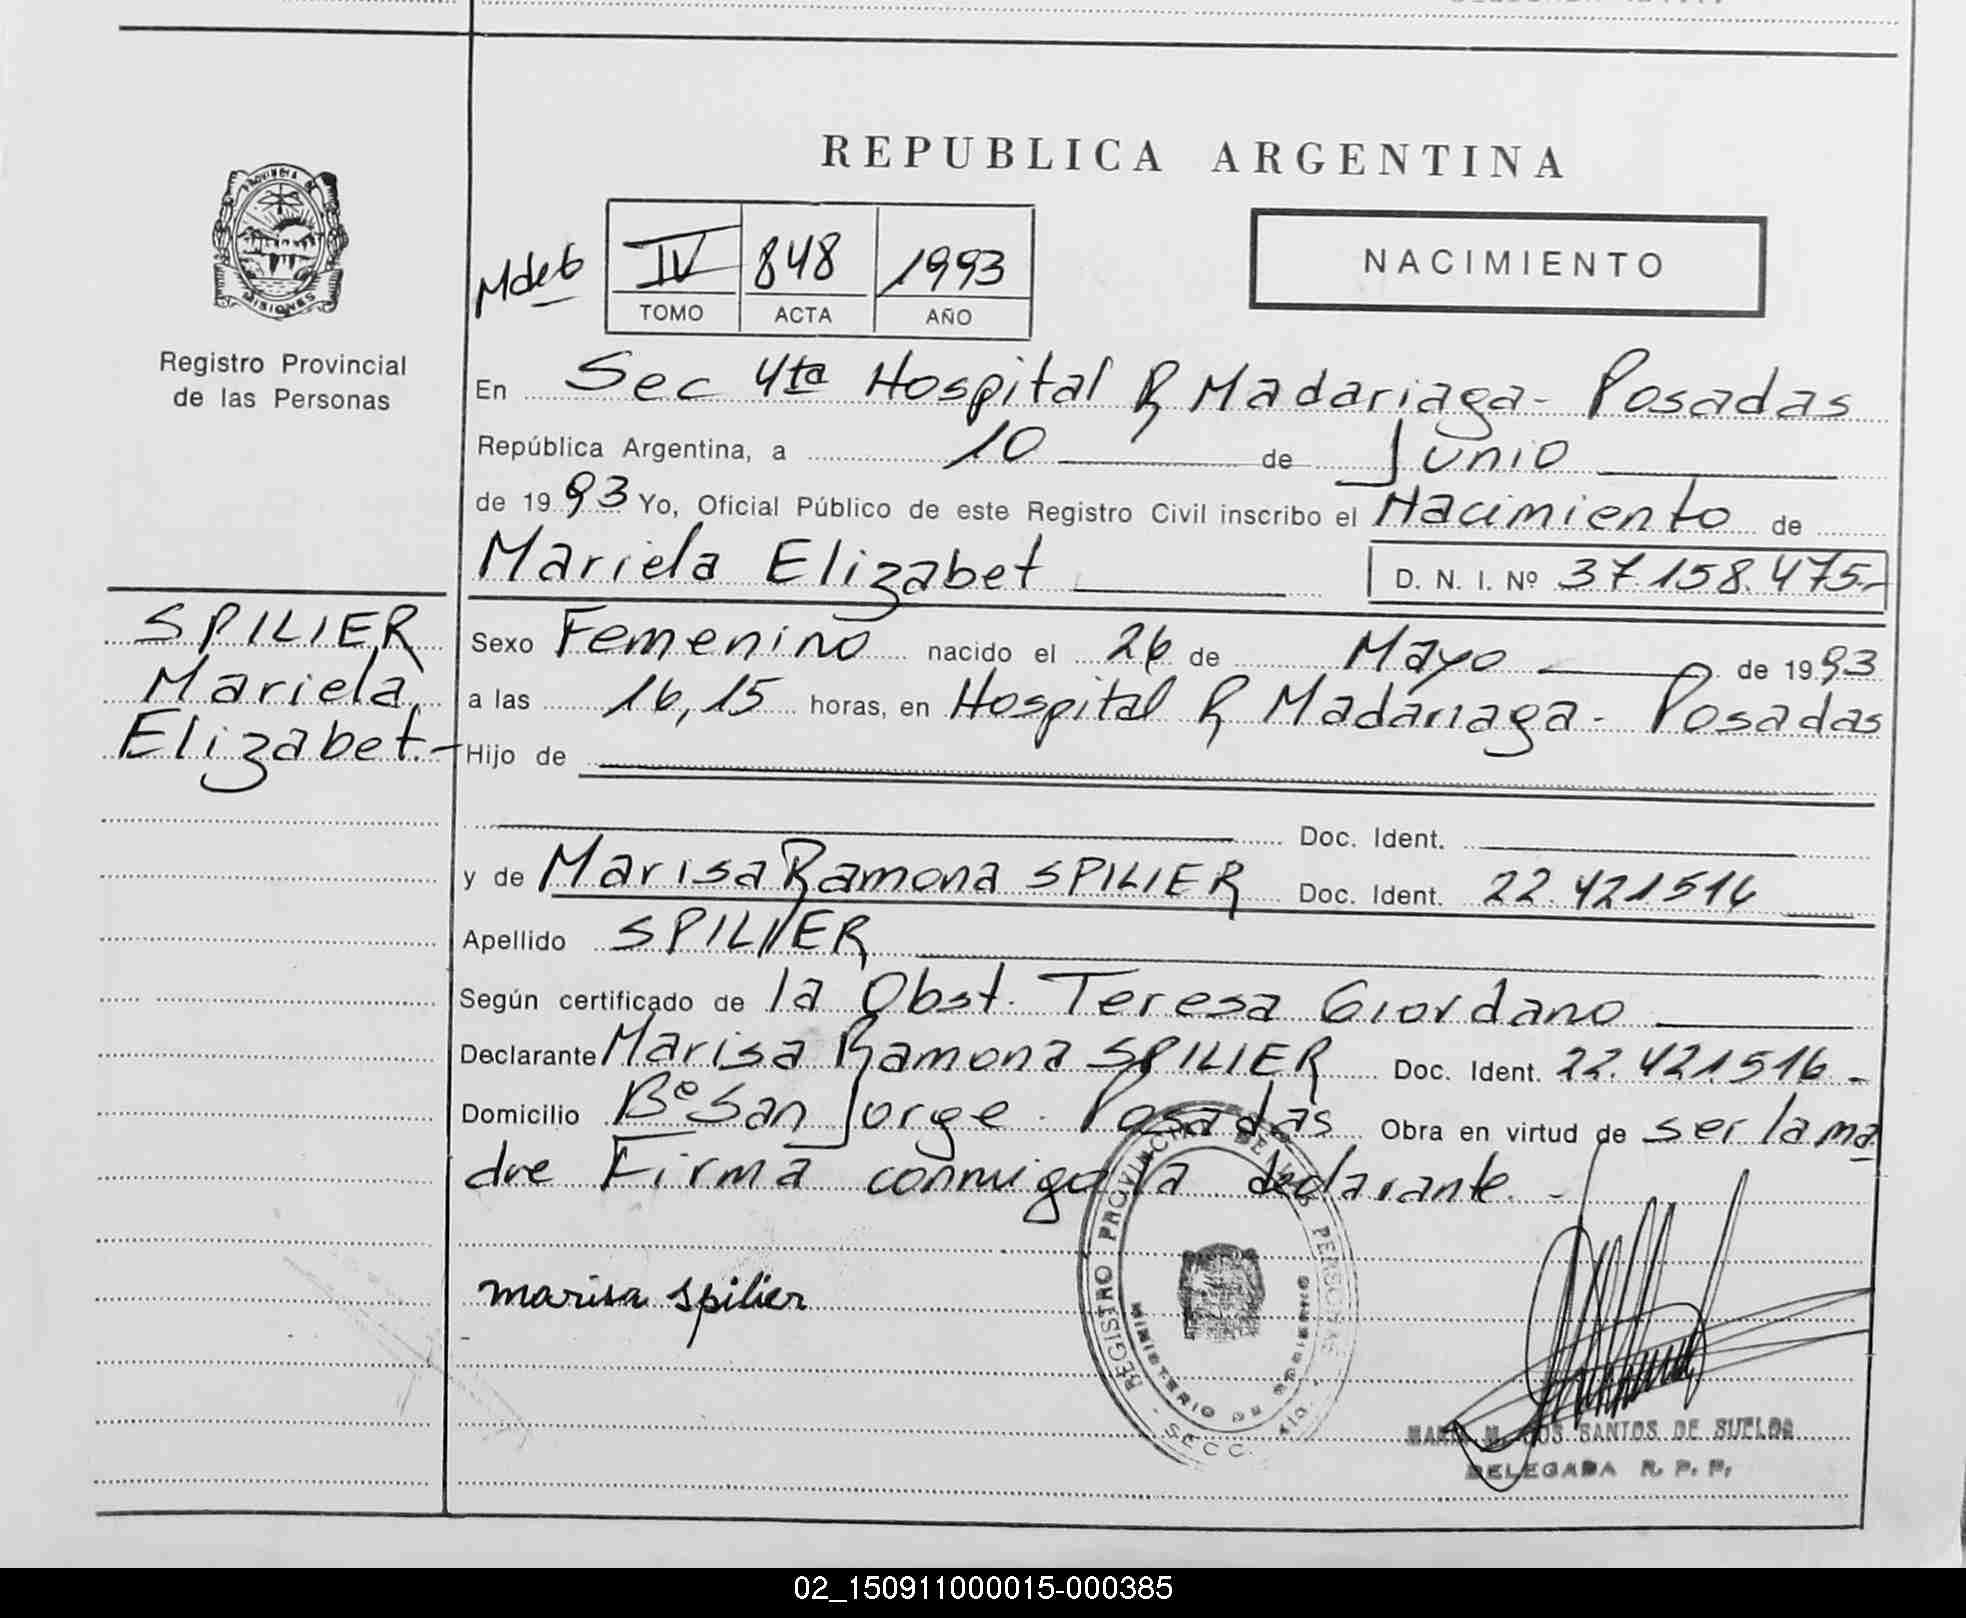 REPUBLICA ARGENTINA
PROVINCIA DE
MISIONES
Registro Provincial
de las Personas
Mdeb
IV 848 1993
TOMO ACTA AÑO
NACIMIENTO
En Sec 4ta Hospital R Madariaga - Posadas
República Argentina, a 10 de Junio
de 1993 Yo, Oficial Público de este Registro Civil inscribo el Nacimiento de
Mariela Elizabet D. N. I. Nº 37.158.475.-
SPILIER
Mariela
Elizabet.-
Sexo Femenino nacido el 26 de Mayo de 1993
a las 16,15 horas, en Hospital R Madariaga - Posadas
Hijo de
Doc. Ident.
y de Marisa Ramona SPILIER Doc. Ident. 22.421516
Apellido SPILIER
Según certificado de la Obst. Teresa Giordano
Declarante Marisa Ramona SPILIER Doc. Ident. 22.421.516 -
Domicilio Bº San Jorge - Posadas Obra en virtud de ser la ma
dre Firma conmigo la declarante. -
marisa spilier
REGISTRO PROVINCIAL DE LAS PERSONAS
MINISTERIO DE GOBIERNO
SECC.
DOS SANTOS DE SUELOS
DELEGADA R. P. P.
02_150911000015-000385